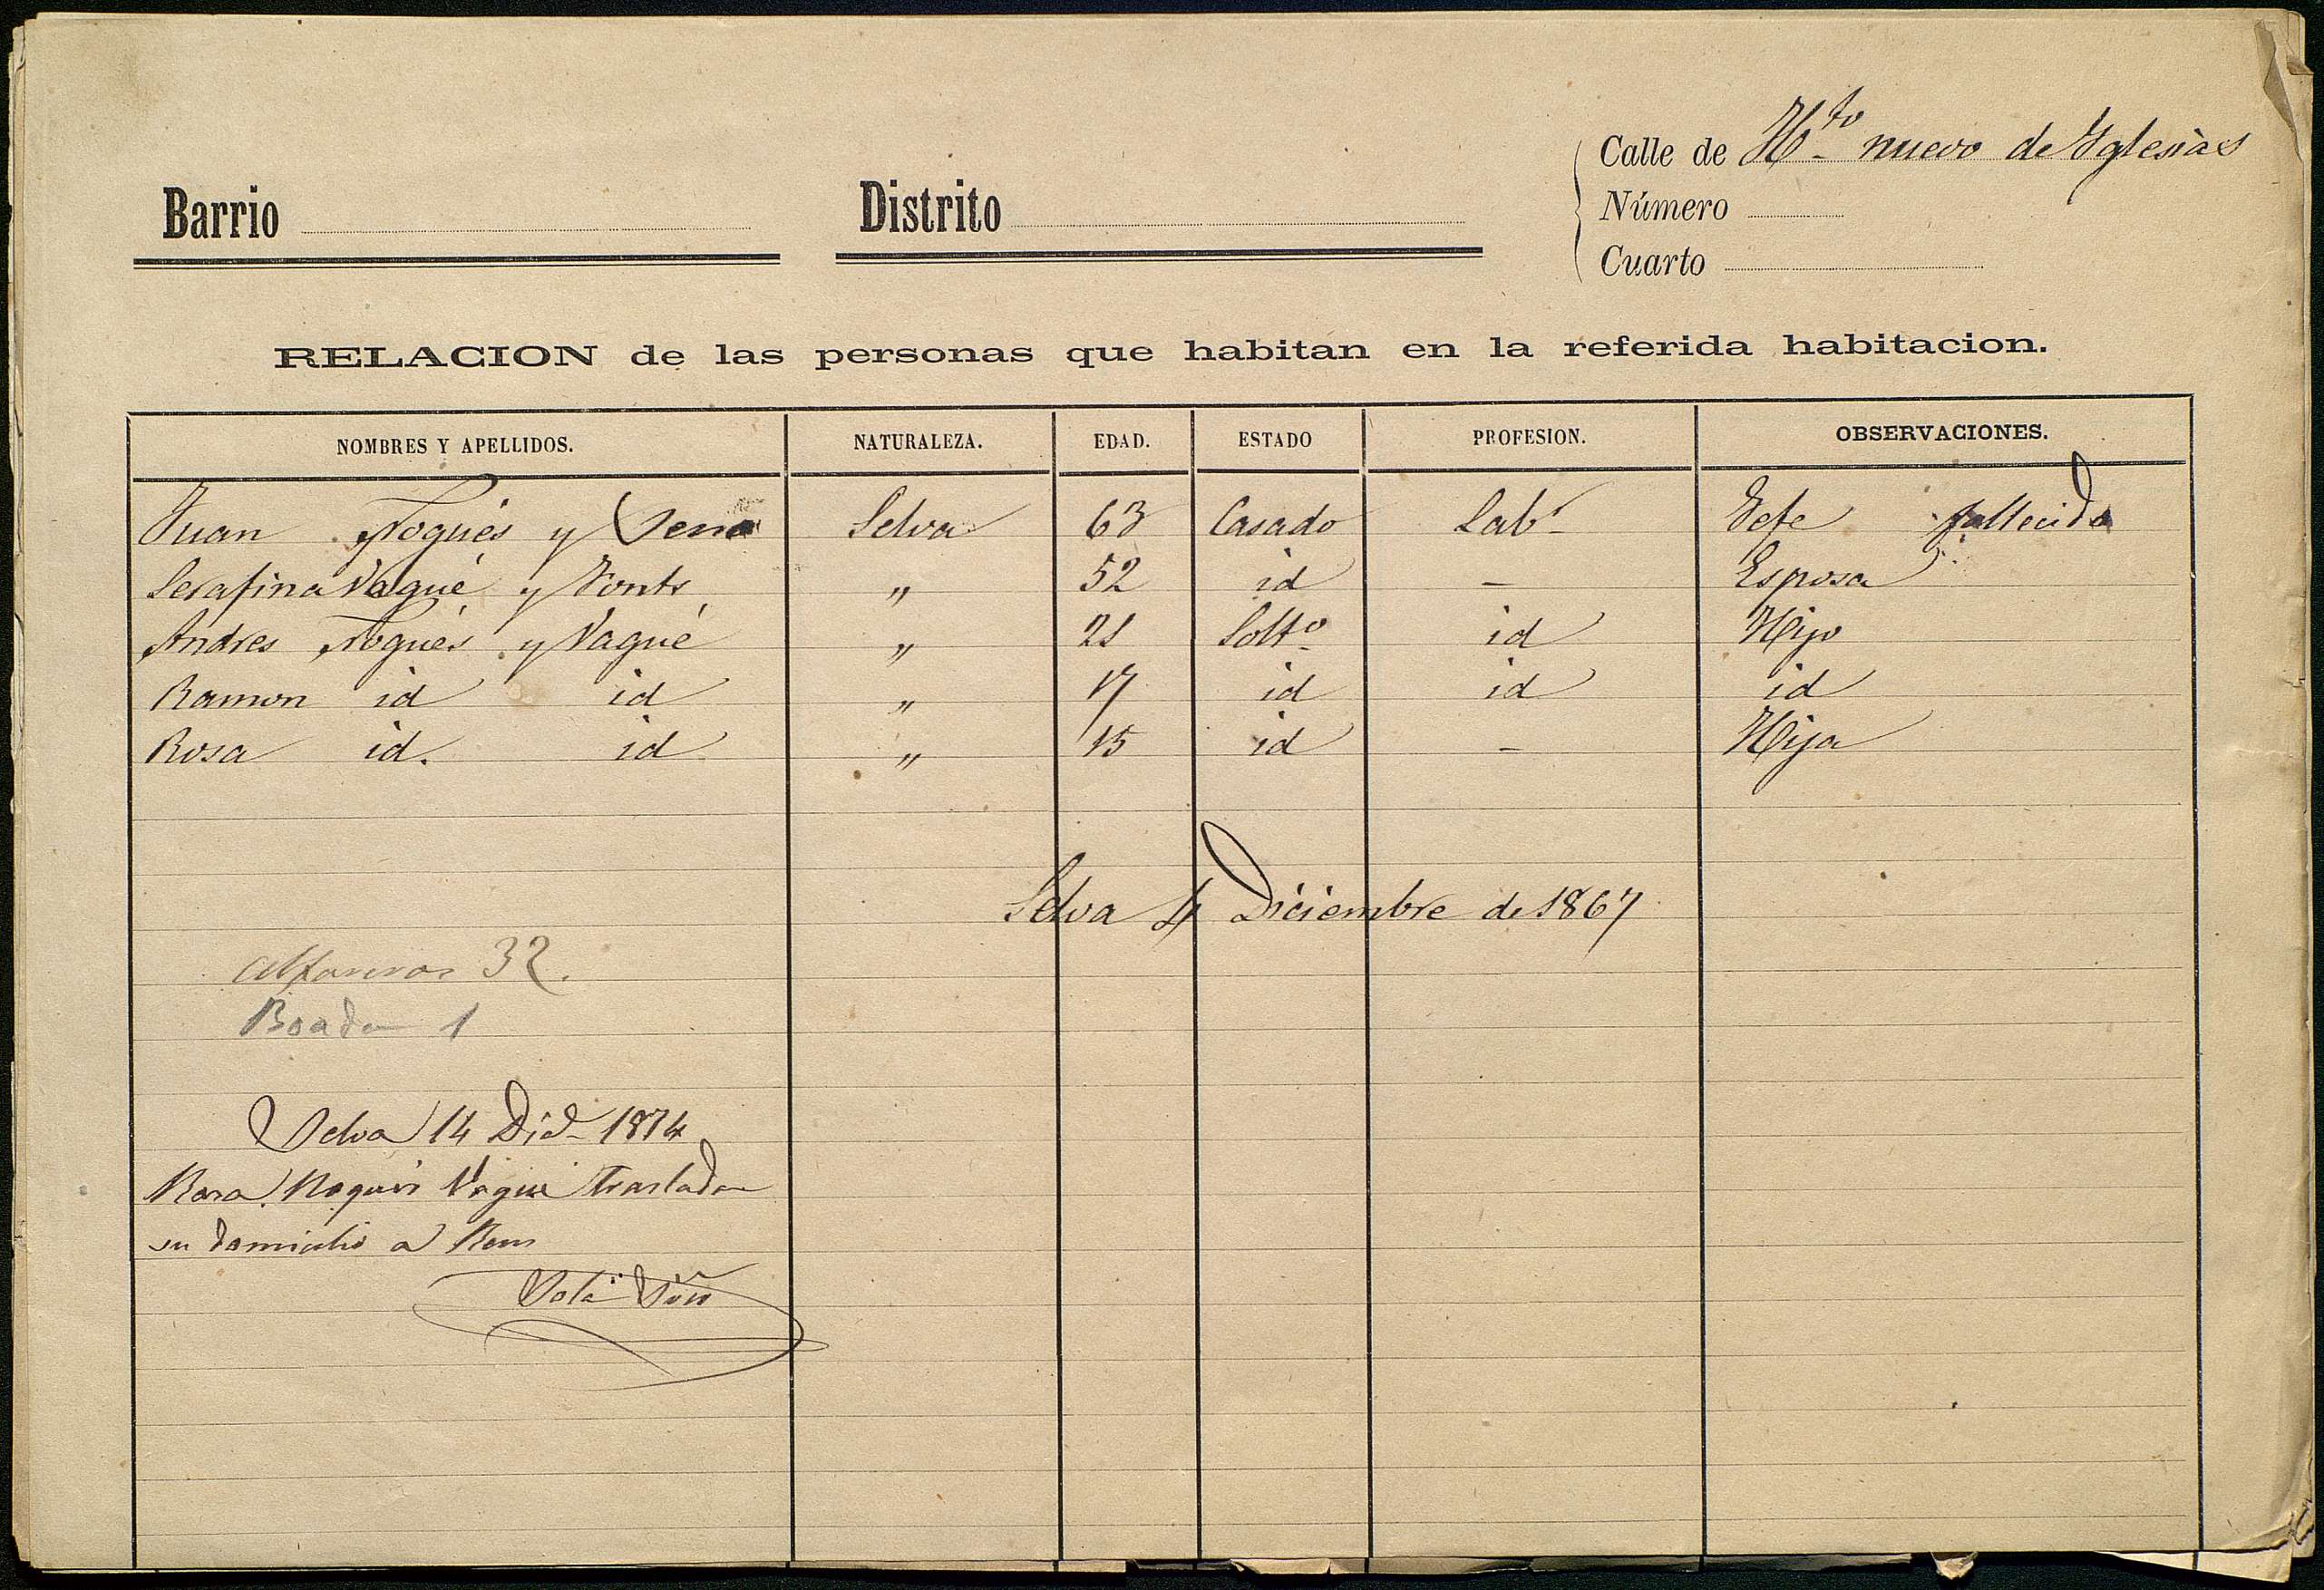 Calle de H.to nuevo de Yglesias
Barrio
Distrito
Número
Cuarto
RELACION de las personas que habitan en la referida habitacion.
NOMBRES Y APELLIDOS. NATURALEZA. EDAD. ESTADO PROFESION. OBSERVACIONES.
Juan Nogués y Selva 63 Casado Lab.r Jefe fallecido
Serafina Vagué y Fonts " 52 id – Esposa
Andres Nogués y Vagué " 21 Solt.o id Hijo
Ramon id id " 17 id id id
Rosa id. id " 15 id – Hija
Selva 4 Diciembre de 1867
32.
Boada 1
Selva 14 Dic.e 1874
Rosa Nogués Vagué traslada
su domicilio a Reus
Solé